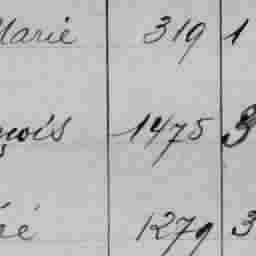 Marie 319 1
çois 1475 3
é 1279 3